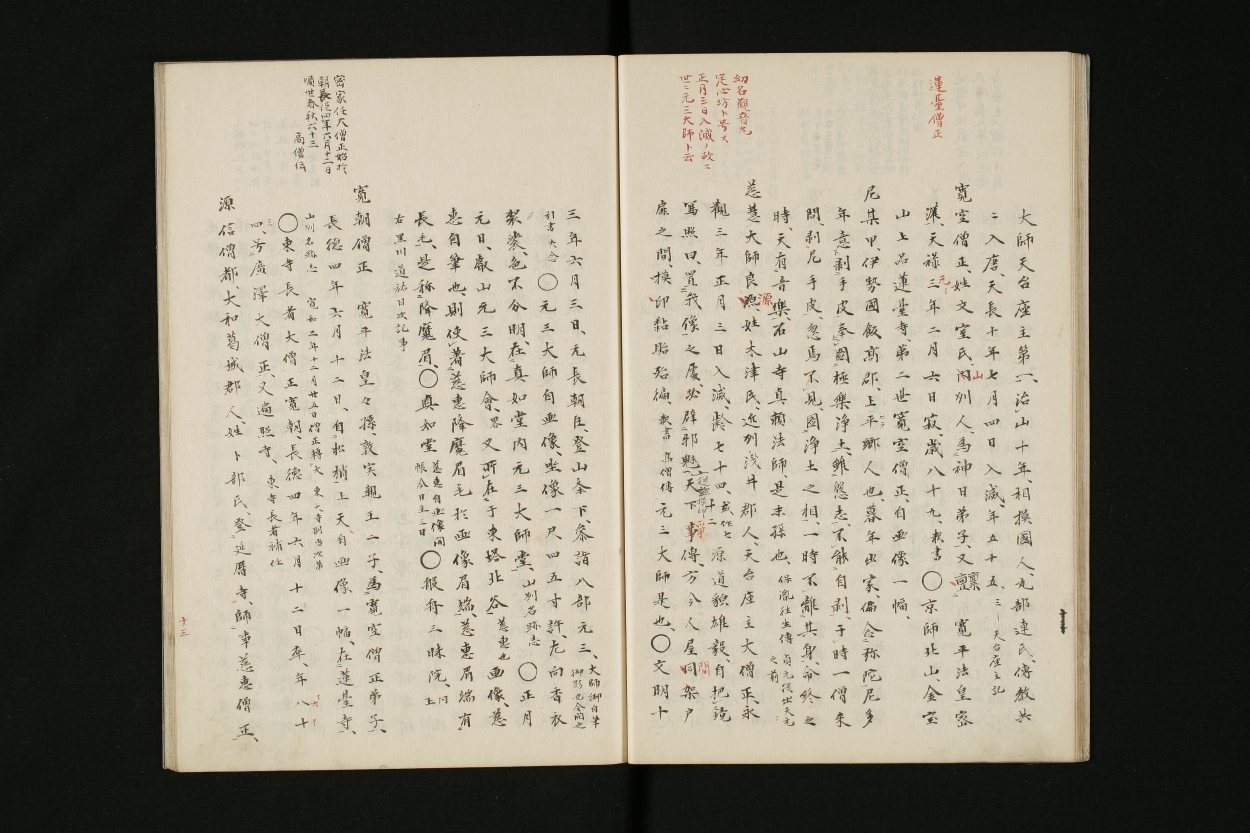 蓮臺僧正
大師天台座主第一、治山十年、相模國人丸部連氏、傳教共
ニ入唐、天長十年七月四日入滅、年五十五、
寛空僧正、姓文室氏、河州人、為神日弟子、又稟寛平法皇密
灌、天禄三年二月六日寂、歳八十九、〇京師北山、金室
山上品蓮臺寺、第二世寛空僧正、自画像一幅、
尼某甲、伊勢國飯高郡、上平郷人也、暮年出家、偏念弥陀、尼多
年意剥手皮、奉圖極楽浄土、雖懇志、不能自剥、于時一僧来
問、剥尼手皮、忽焉不見、圖浄土之相、一時不離其身、命終之
時、天有音楽、石山寺真頼法師、是末孫也、
幼名觀音丸
定心坊ト号ス
正月三日入滅ノ故ニ
世ニ元三大師ト云
慈慧大師良源、姓木津氏、近州浅井郡人、天台座主大僧正、永
觀三年正月三日入滅、齢七十四、源道貌雄毅、自把鏡
写照曰、置我像之處、必辟邪魅、天下争傳、方今人屋間架戸
扉之間模印黏貼殆徧、元三大師是也、〇文明十
三年六月三日、元長朝臣、登山条下、参詣八部元三、大師御自筆
〇元三大師自画像、坐像一尺四五寸許、左向香衣
袈裟、色不分明、在真如堂内元三大師堂、山州名跡志〇正月
元日、叡山元三大師會、畧又所在于東塔北谷慈惠也画像、慈
惠自筆也、則使著慈惠降魔眉毛於画像眉端、慈惠眉端有
長毛、是称降魔眉、〇真如堂慈惠自画像開帳今日至三日〇般舟三昧院上
右黒川道祐日次記事
密家任大僧正始於
朝
長徳四年六月十二日
順世春秋六十三
高僧伝
寛朝僧正 寛平法皇々孫、敦実親王二子、為寛空僧正弟子、
長徳四年六月十二日、自松梢上天、自画像一幅、在蓮臺寺、
山州名跡志
〇東寺長者大僧正寛朝、長徳四年六月十二日卒、年八十
四、号廣澤大僧正、又遍照寺、東寺長者補任
源信僧都、大和葛城郡人、姓卜部氏、登延暦寺、師事慈惠僧正、
十三